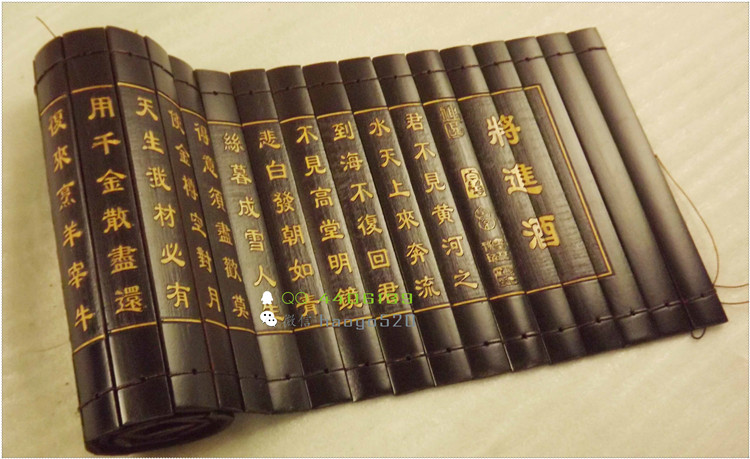 將進酒
君不見黃河之
水天上來奔流
到海不復回君
不見高堂明鏡
悲白發朝如青
絲暮成雪人生
得意須盡歡莫
使金樽空對月
天生我材必有
用千金散盡還
復來烹羊宰牛
QQ:
微信